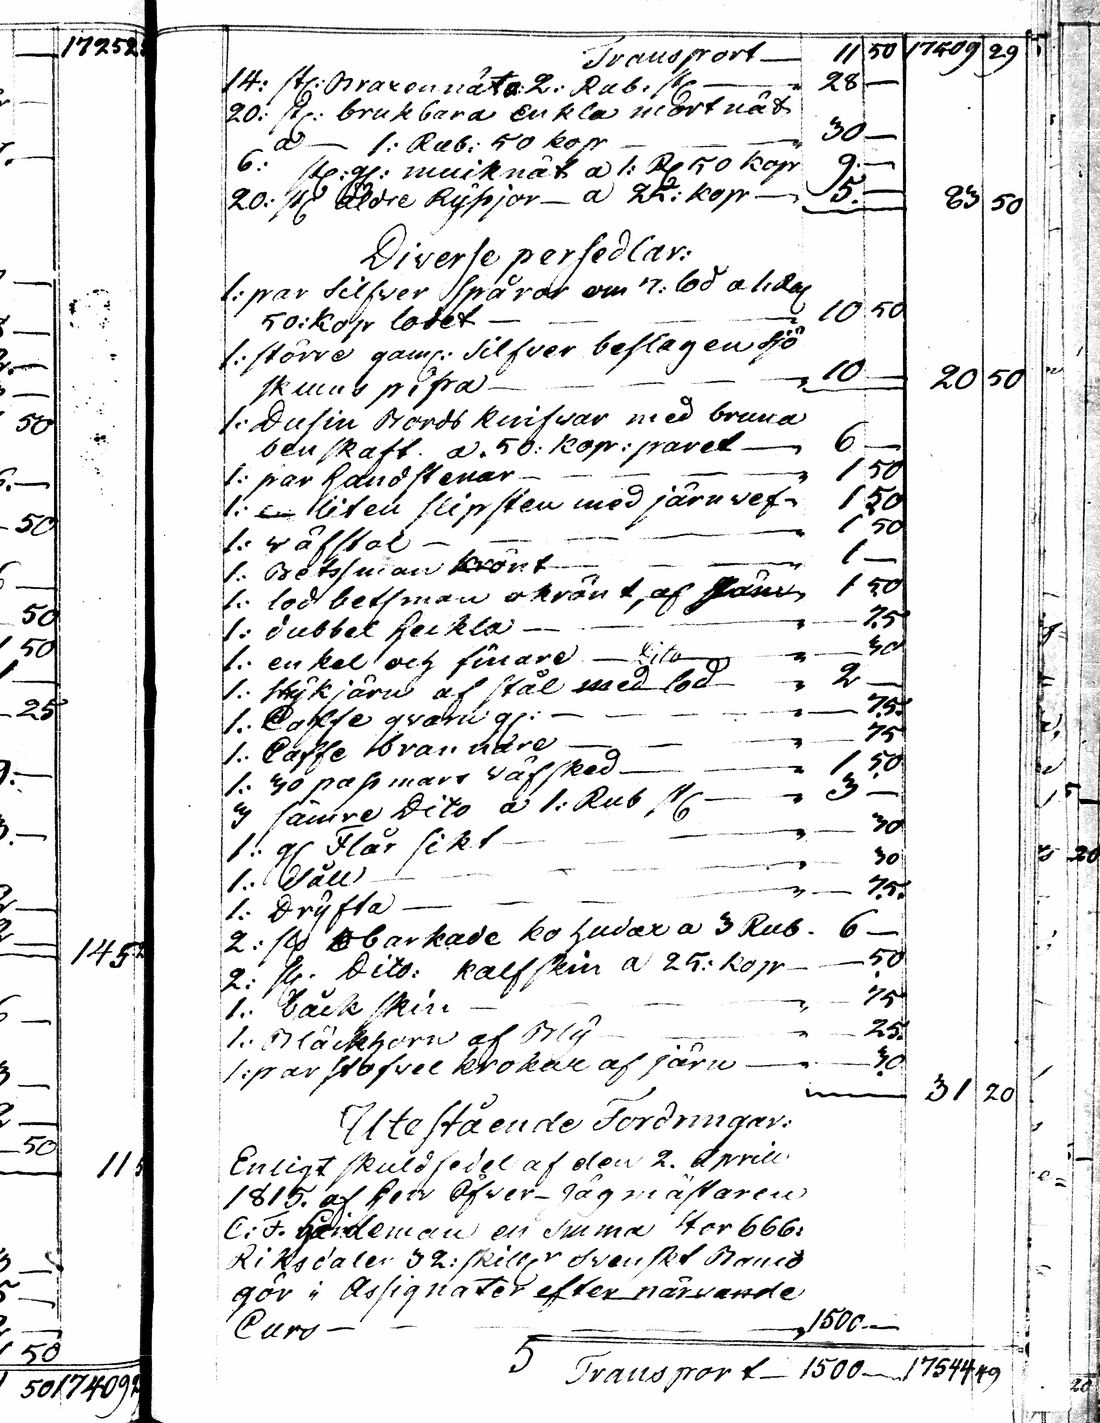 Transport — 11 50 17509 29
14: st: Braxennät a 2: Rub. st — 28 —
20: st: brukbara enkla mörtnät
a — 1: Rub: 50 kop — 30 —
6: st: gl: muiknät a 1: R 50 kop 9: —
20: st äldre Ryssjor — a 25: kop — 5. — 83 50
Diverse persedlar:
1: par Silfver Spåror om 7: lod a 1: Rub
50: kop lodet — 10 50
1: större gam: Silfver beslagen sjö
skums pipa — 10 — 20 50
1: Dusin Bords knifvar med bruna
ben skaft a. 50: kop: paret — 6 —
1: par handstenar — 1 50
1: liten slipsten med järnvef — 1 50
1: väfstol — 1 50
1: Betsman krönt — 1 —
1: lod betsman okrönt, af järn 1 50
1: dubbel heckla — 75
1: enkel och finare — dito — 30
1: strykjärn af stål med lod 2 —
1: Caffe qvarn gl: — 75
1: Caffe brännare — 75
1: 30 pasmars väfsked — 1 50
3 sämre Dito a 1: Rub st — 3 —
1: gl Flår sikt — 30
1: Såll — 30
1: Dryfta — 75
2: st barkade ko hudar a 3 Rub. 6 —
2: st. Dito: kalfskin a 25: kop — 50
1: bäck skin — 75
1: Bläckhorn af Bly 25
1: par stöfvel krokar af järn — 30
31 20
Utestående Fordringar:
Enligt skuldsedel af den 2. April
1815. af herr Öfver-Jägmästaren
C: F. Heideman en summa stor 666:
Riksdaler 32: skill svenskt Banco
gör i Assignater efter närvande
Curs — 1500 —
5 Transport — 1500 — 17544 49